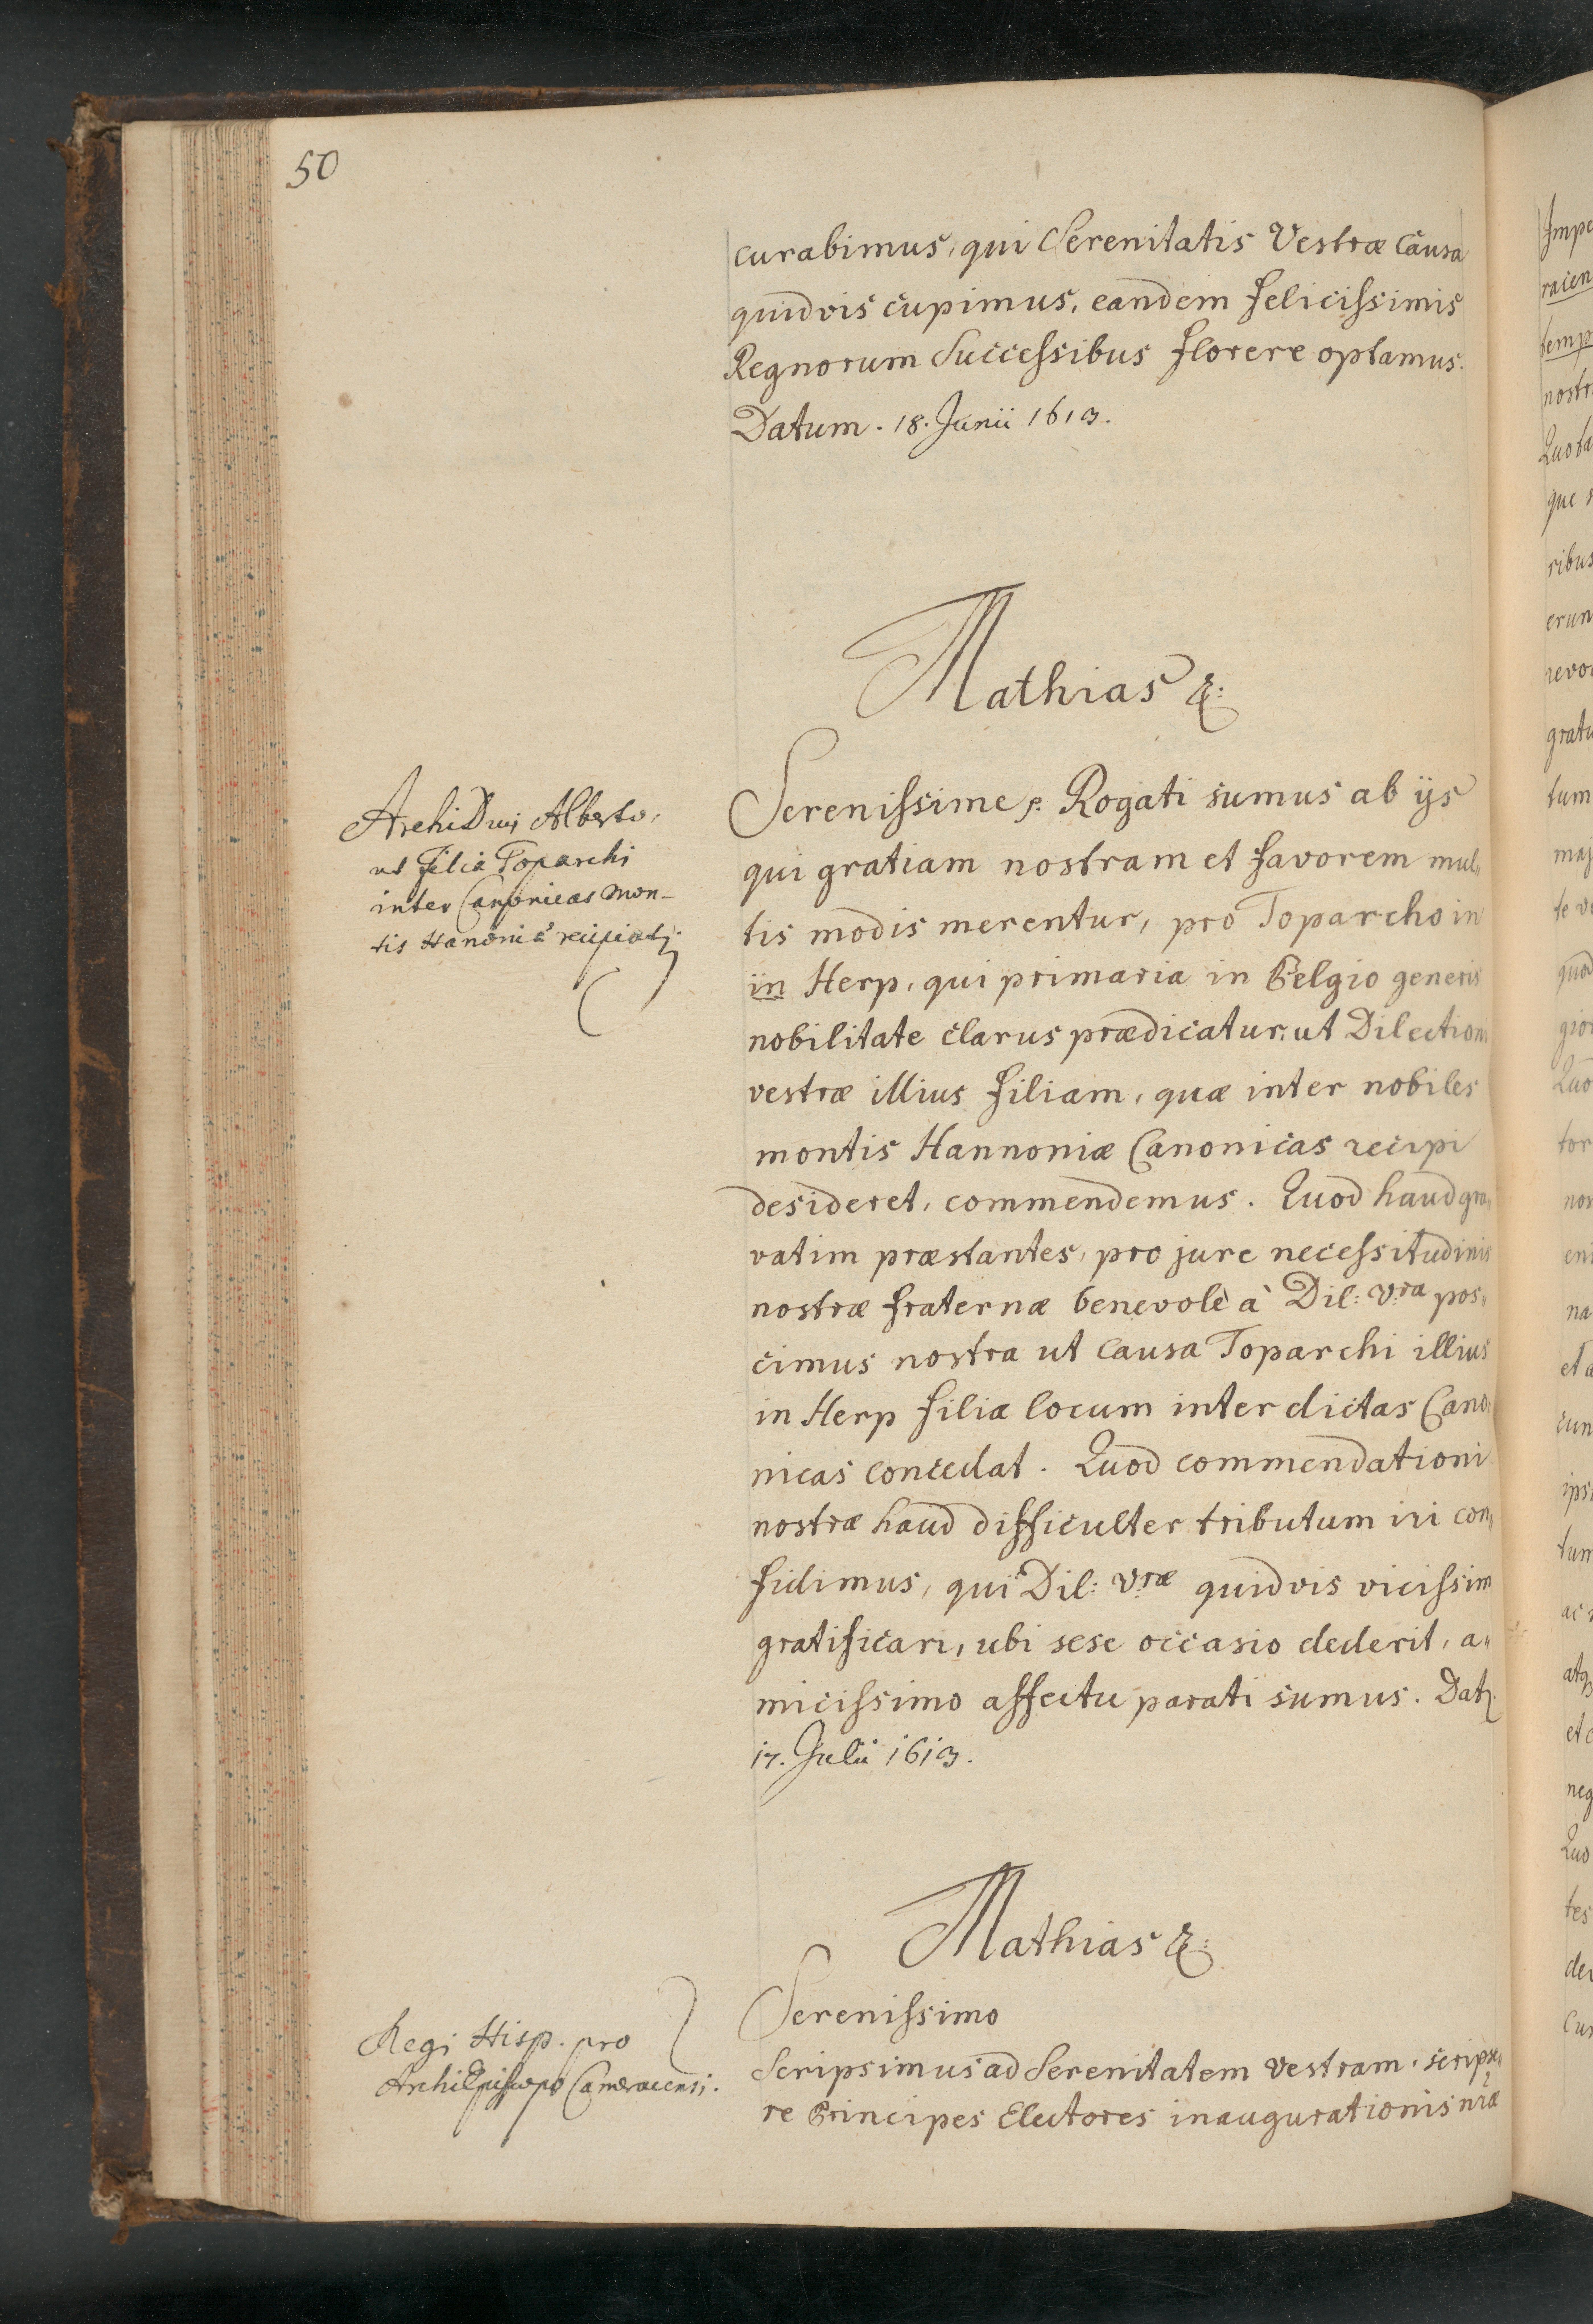 50
curabimus, qui Serenitatis Vestræ causa
quidvis cupimus, eandem felicissimis
Regnorum Successibus florere optamus.
Datum. 18. Junii 1613.
Mathias &:
ArchiDuci Alberto,
ut filia Toparchi
inter Canonicas Mon-
tis Hanoniæ recipiatj.
Serenissime p. Rogati sumus ab ijs
qui gratiam nostram et favorem mul„
tis modis merentur, pro Toparcho in
in Herp, qui primaria in Belgio generis
nobilitate clarus prædicatur: ut Dilectioni
vestræ illius filiam, quæ inter nobiles
montis Hannoniæ Canonicas recipi
desideret, commendemus. Quod haud gra„
vatim præstantes, pro jure necessitudinis
nostræ fraternæ benevolè à Dil: Vra pos„
cimus nostra ut causa Toparchi illius
in Herp filiæ locum inter dictas Cano„
nicas concedat. Quod commendationi
nostræ haud difficulter tributum iri con„
fidimus, qui Dil: Vræ quidvis vicissim
gratificari, ubi sese occasio dederit, a„
micissimo affectu parati sumus. Datj.
17. Julii 1613.
Mathias &:
Regi Hisp. pro
ArchiEpiscopo Cameracensi.
Serenissimo
Scripsimus ad Serenitatem vestram, scripse„
re Principes Electores inaugurationis nræ